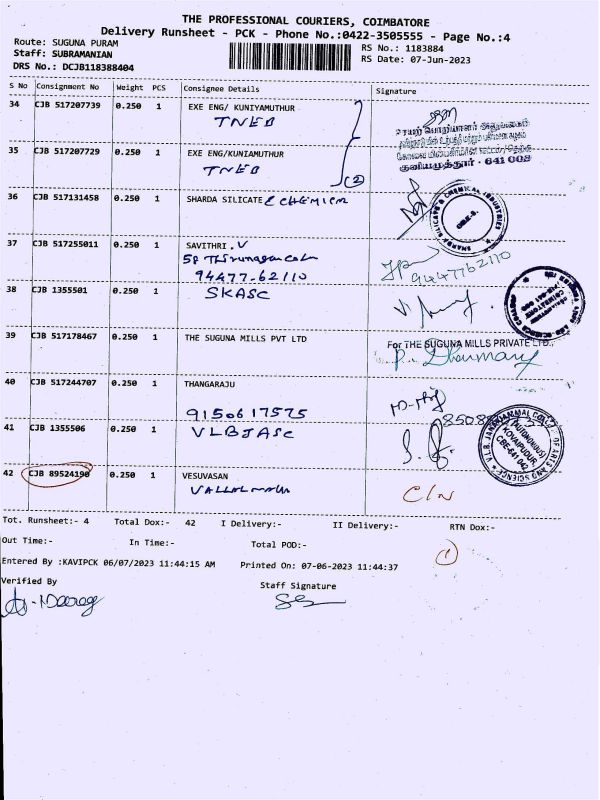 THE PROFESSIONAL COURIERS, COIMBATORE
Delivery Runsheet - PCK - Phone No.:0422-3505555 - Page No.:4
Route: SUGUNA PURAM RS No.: 1183884
Staff: SUBRAMANIAN RS Date: 07-Jun-2023
DRS No.: DCJB118388404
S No Consignment No Weight PCS Consignee Details Signature
34 CJB 517207739 0.250 1 EXE ENG/ KUNIYAMUTHUR
TNEB
35 CJB 517207729 0.250 1 EXE ENG/KUNIAMUTHUR
TNEB
(2)
குனியமுத்தூர் - 641 008
36 CJB 517131458 0.250 1 SHARDA SILICATE & CHEMICA
SHARDA SILICATE & CHEMICAL INDUSTRIES
CBE-8.
37 CJB 517255011 0.250 1 SAVITHRI . V
94477-62110
9447762110
38 CJB 1355501 0.250 1 SKASC
39 CJB 517178467 0.250 1 THE SUGUNA MILLS PVT LTD For THE SUGUNA MILLS PRIVATE LTD.,
40 CJB 517244707 0.250 1 THANGARAJU
9150617575
41 CJB 1355506 0.250 1 VLBJASC
V.L.B. JANAKIAMMAL COLLEGE OF ARTS AND SCIENCE
(AUTONOMOUS)
KOVAIPUDUR
CBE-641 042
42 CJB 89524190 0.250 1 VESUVASAN
C/N
Tot. Runsheet:- 4 Total Dox:- 42 I Delivery:- II Delivery:- RTN Dox:-
Out Time:- In Time:- Total POD:- 1
Entered By :KAVIPCK 06/07/2023 11:44:15 AM Printed On: 07-06-2023 11:44:37
Verified By Staff Signature